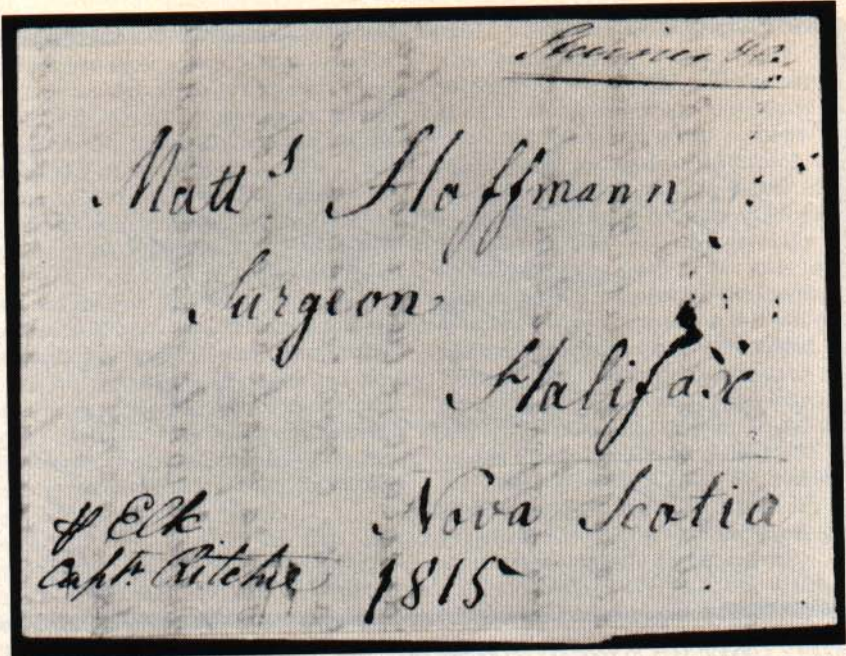 Matt^s Hoffmann
Surgeon
Halifax
Nova Scotia
⅌ Elk
Capt^n Ritchie 1815